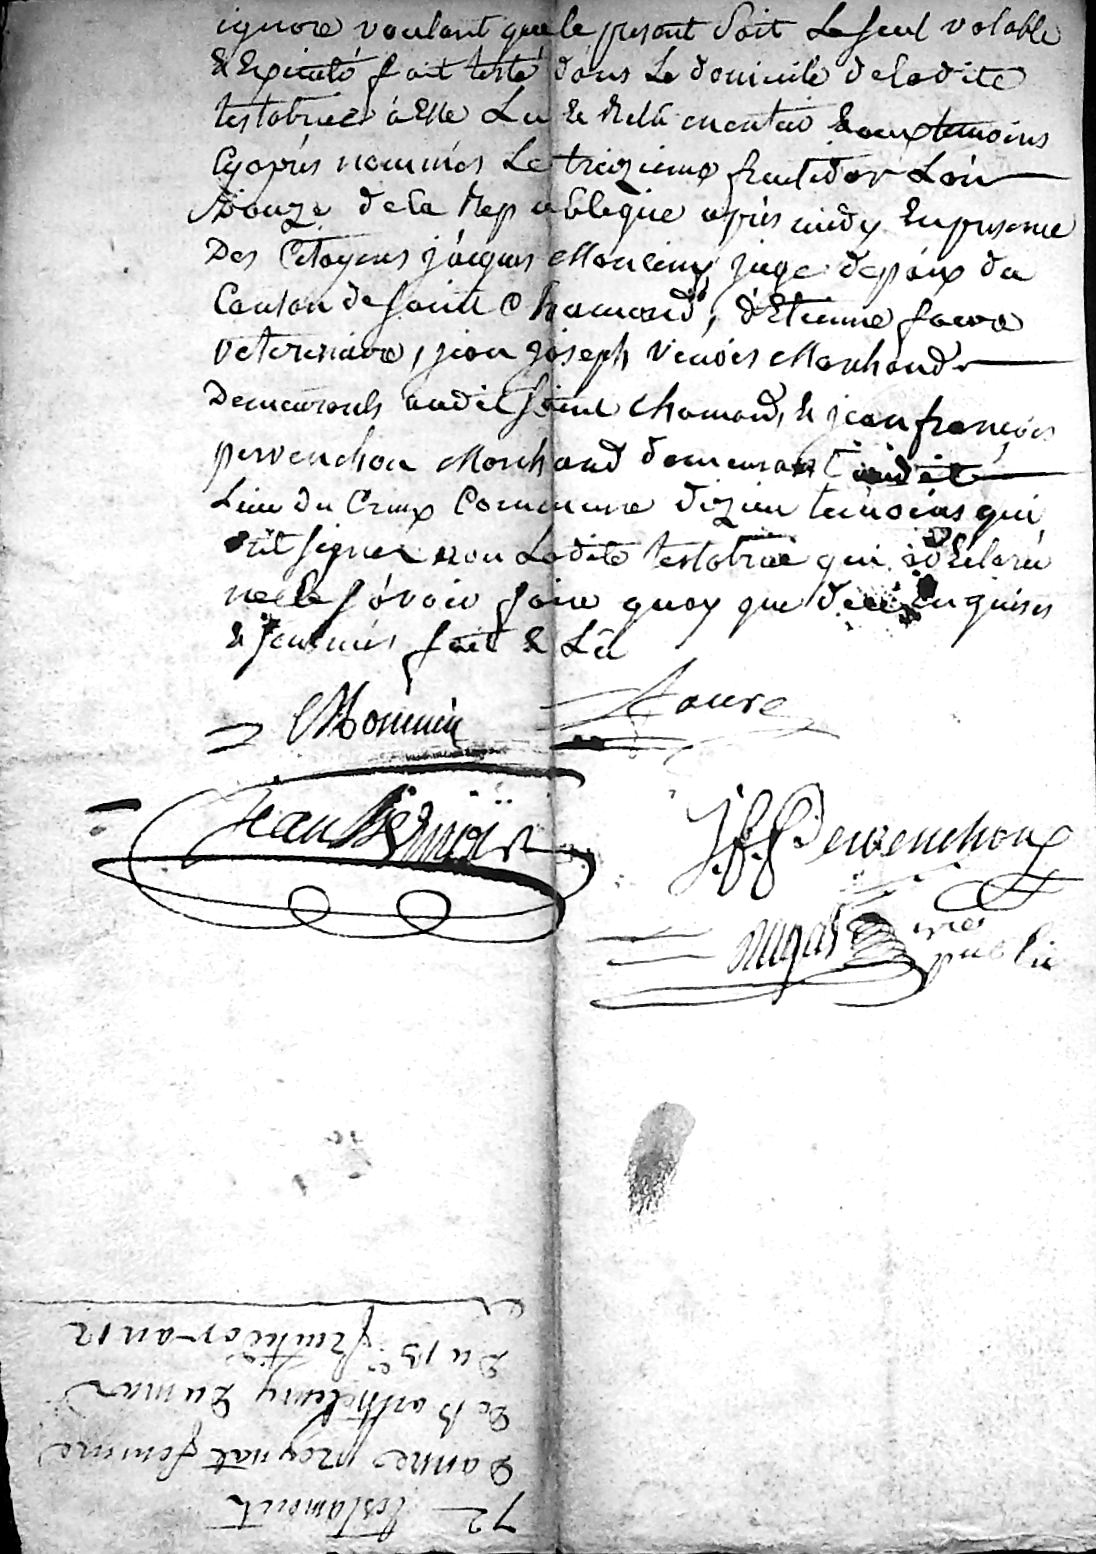 ignore voulant que le present soit Le seul valable
& Executé fait testé dans Le domicile de ladite
testatrice à Elle Lu & Relu en entier & aux temoins
Cy après nommés Le treizieme fructidor L'an
Douze de la Republique après midy En presence
Des Citoyens jacques juge de paix du
Canton de saint Chamond, d'Etienne faure
veterinaire, jean joseph Marchand
Demeurants audit saint chamond, & jean françois
pervenchon Marchand demeurant audit
Lieu du Creux Commune d'izieu temoins qui
ont signé non Ladite testatrice qui a déclaré
ne le sçavoir faire quoy que de ce Enquises
& sommés fait & Lu
faure
jean
J. f. Pervenchon
public
72 testament
D'anne preynat femme
De Barthelemy Dumas
Du 13e fructidor an 12